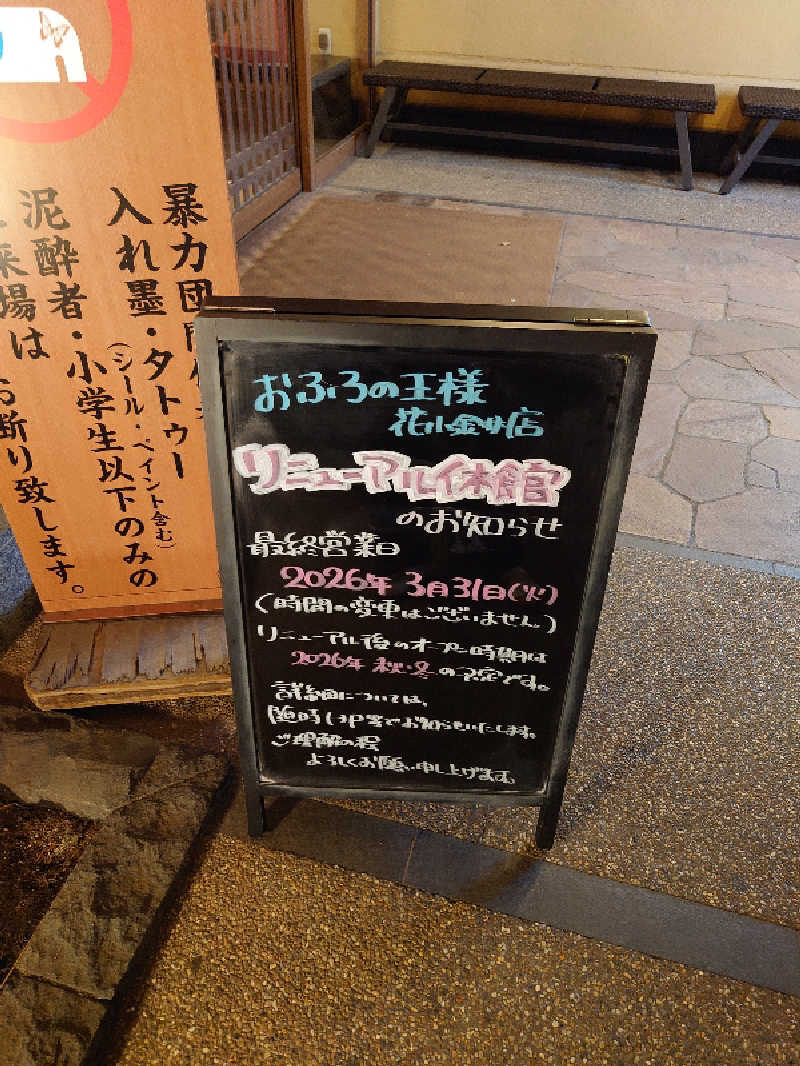 暴力団
入れ墨・タトゥー
(シール・ペイント含む)
泥酔者・小学生以下のみの
来場は お断り致します。
おふろの王様
花小金井店
リニューアル休館
のお知らせ
最終営業日
2026年 3月31日(火)
(時間の変更はございません。)
リニューアル後のオープン時期は
2026年 秋・冬の予定です。
詳細については、
随時HP等でお知らせいたします。
ご理解の程
よろしくお願い申し上げます。